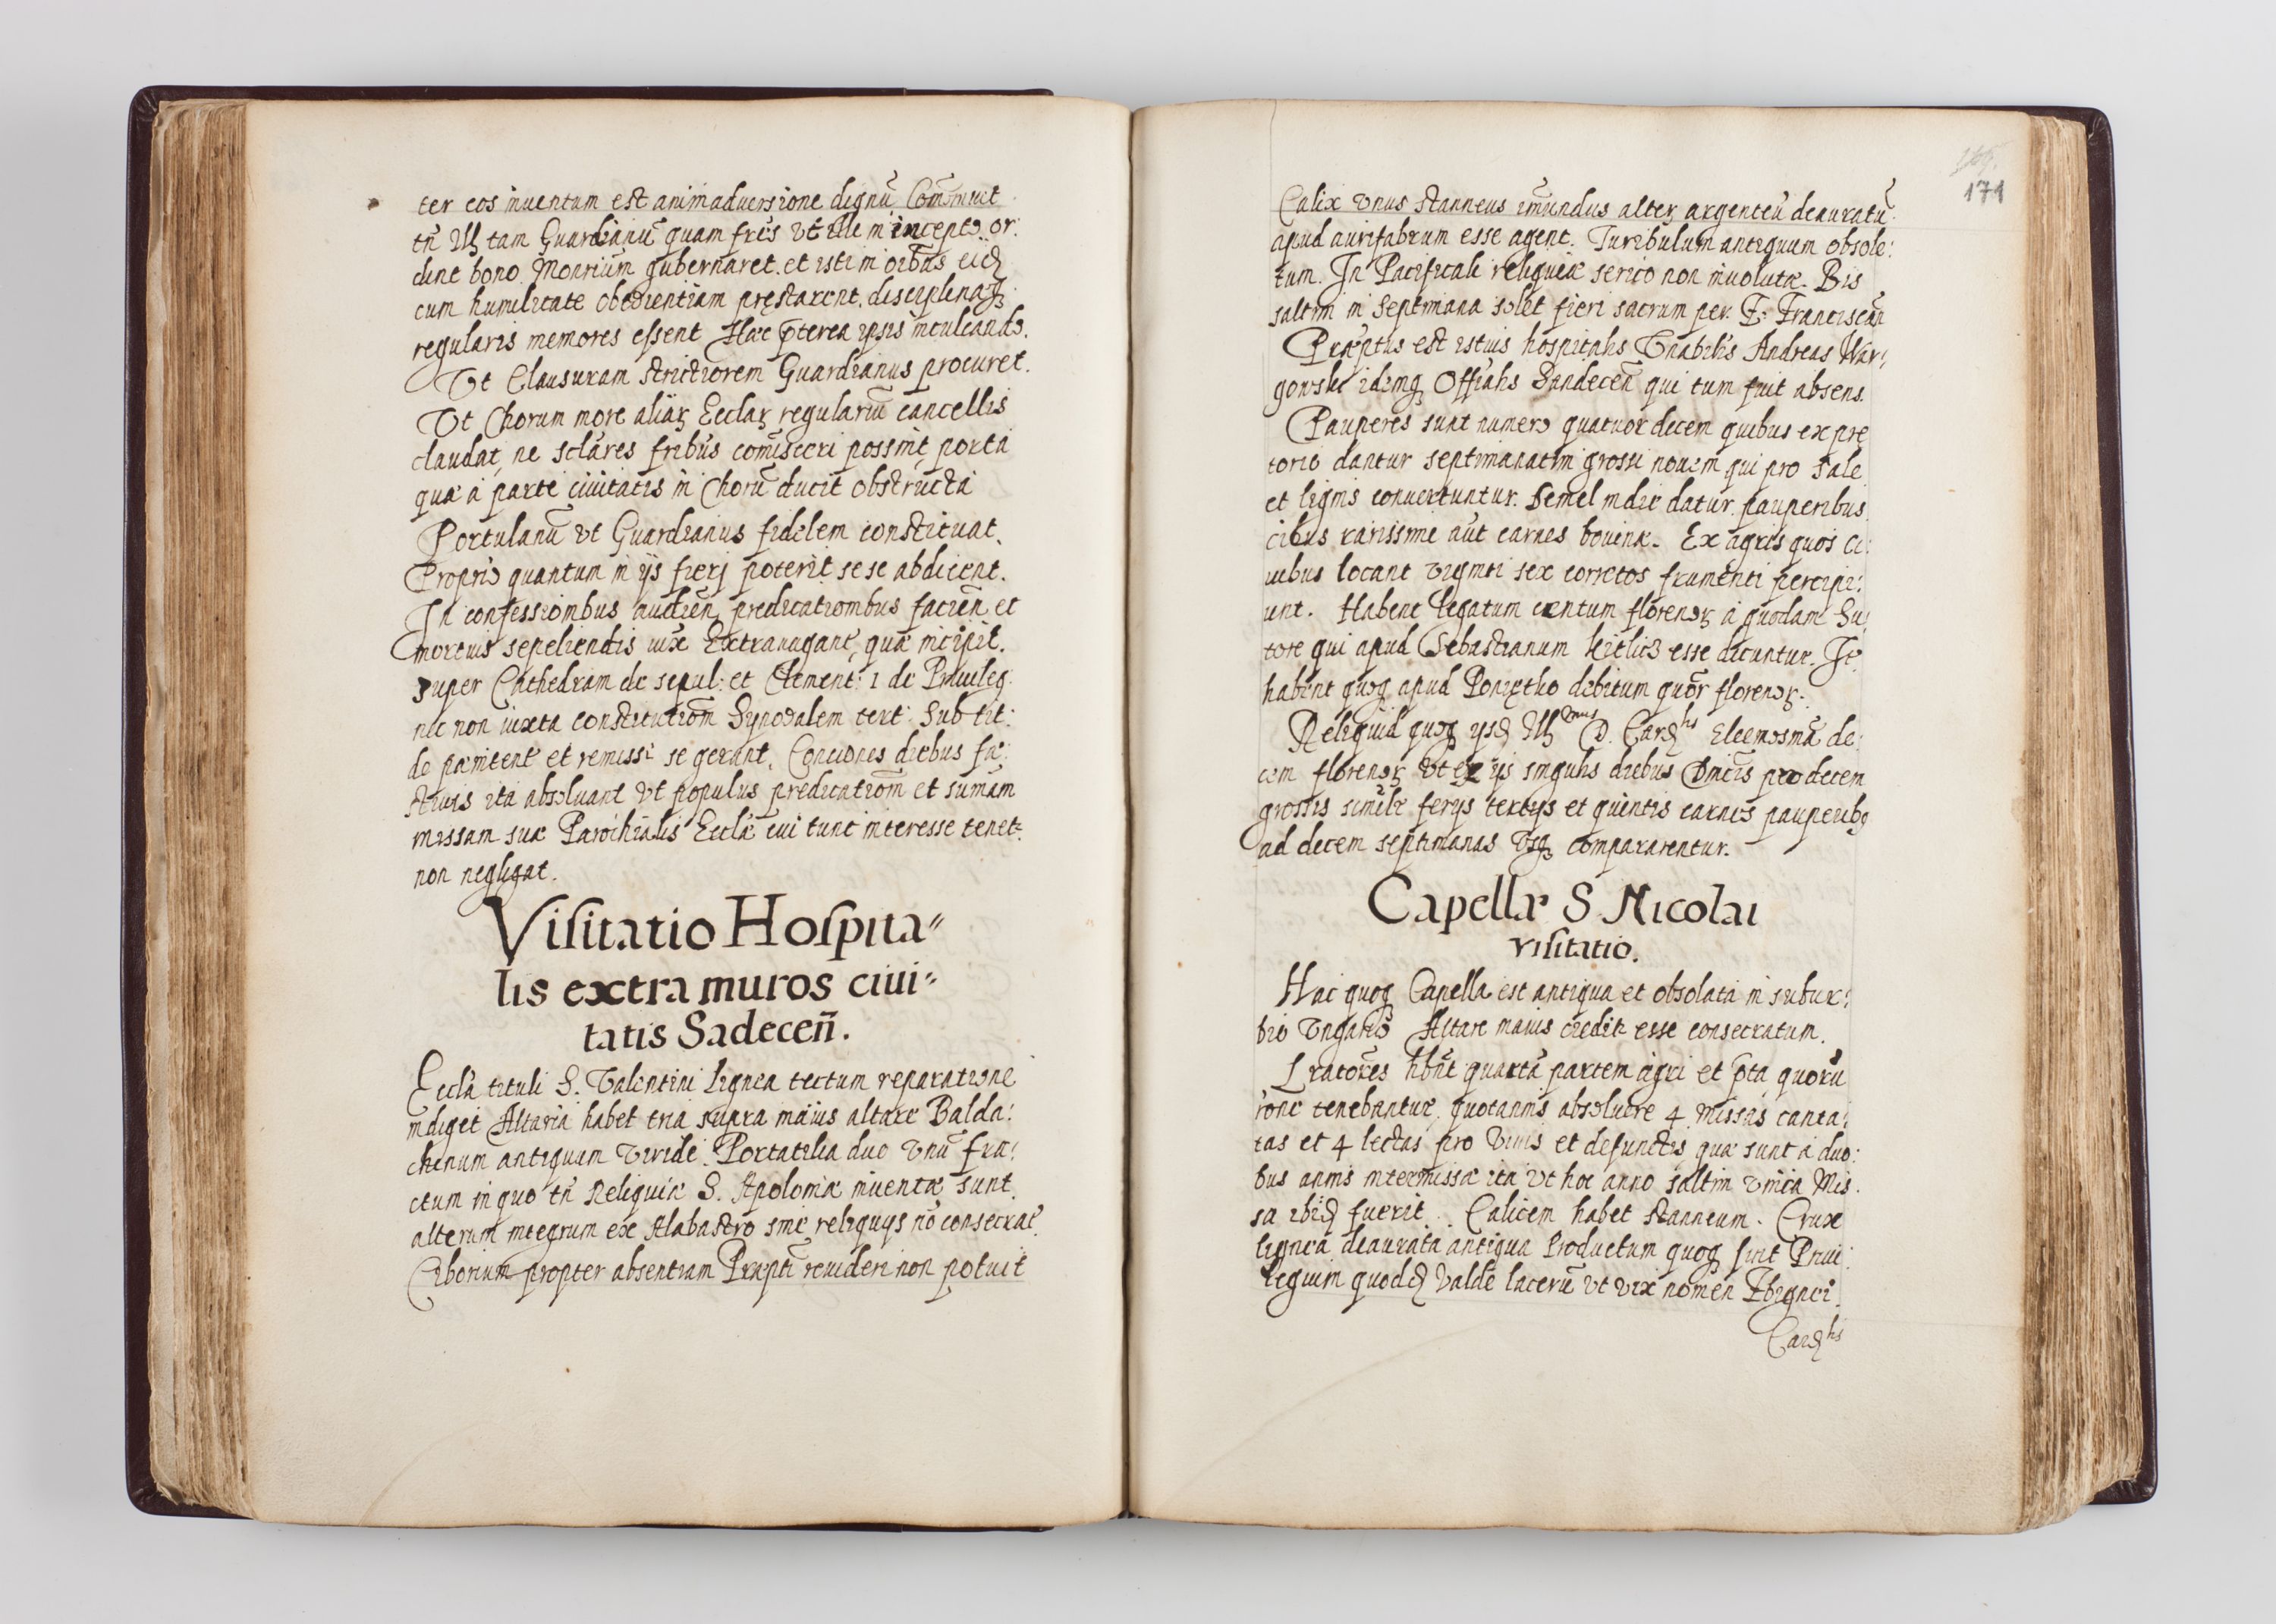 ter eos inuentum est animaduersione dignũ Com̃onuit
tñ Ill tam Guardianũ quam frẽs vt ille in incepto or:
dine bono Monrium gubernaret et isti in oĩbus eid
cum humilitate obedientiam pręstarent, disciplinaq
regularis memores essent Hæc p̃terea ipsis inculcando.
Vt Clausuram strictiorem Guardianus procuret.
Vt Chorum more aliar Ecclar regulariũ cancellis
claudat, ne sclãres fribus com̃isceri possint, porta
qua a parte ciuitatis in Chorũ ducit obstructa
Portulanũ vt Guardianus fidelem constituat.
Proprio quantum in ijs fieri poterit sese abdicent.
In confessionibus audien̄, predicationibus facien̄ et
mortuis sepeliendis iux Extrauagant, quæ incipit.
super Cathedram de sepul: et Clement: 1 de Priuileg.
nec non iuxta constitutiom̃ Synodalem tert: sub tit:
de pœnitent et remissi se gerant. Conciones diebus fe:
stiuis ita absoluant vt populus predicatiom̃ et sum̃am
missam suæ Parochialis Ecclæ cui tunc interesse tenet
non negligat.
Visitatio Hospita=
lis extra muros ciui=
tatis Sadeceñ.
Eccla tituli S. Valentini lignea tectum reparatione
indiget Altaria habet tria supra maius altare Balda:
chinum antiquum viride. Portatilia duo vnũ fra:
ctum in quo tñ Reliquiæ S. Apoloniæ inuentæ sunt.
alterum integrum ex Alabastro sine reliquijs nõ consecrat.
Ciborium propter absentiam Præpti reuideri non potuit
171
Calix vnus stanneus im̃undus alter argenteũ deauratũ
apud aurifabrum esse agent. Turibulum antiquum obsole:
tum. In Pacificali reliquiæ serico non inuolutæ. Bis
saltim in septimana solet fieri sacrum per F. Franciscan̄
Præptus est istius hospitalis Vnabilis Andreas War:
gowski idemq Offialis Sandeceñ qui tum fuit absens.
Pauperes sunt numero quatuordecem quibus ex pre
torio dantur septimanatim grossi nouem qui pro sale
et lignis conuertuntur. Semel in die datur pauperibus
cibus rarissime aut carnes bouinæ. Ex agris quos ci:
uibus locant viginti sex corretos frumenti percipi:
unt. Habent legatum centum florenor a quodam Su:
tore qui apud Sebastianum esse dicuntur. It
habent quoq apud debitum quor florenor.
Reliquid quoq ysd Ill mus D. Card lis Eleemosinã de:
cem florenor vt ex ijs singulis diebus Dnicis pro decem
grossis simile ferijs tertijs et quintis carnes pauperibq
ad decem septimanas vsq compararentur.
Capellæ S Nicolai
visitatio.
Hæc quoq Capella est antiqua et obsolata in subur:
bio Vngarico Altare maius credit esse consecratum.
Lratores hñt quartã partem agri et p̃ta quorũ
rone tenebantur quotannis absoluere 4 missas canta:
tas et 4 lectas pro viuis et defunctis quæ sunt a duo:
bus annis intermissæ ita vt hoc anno saltim vnica Mis
sa ibid fuerit. Calicem habet stanneum. Crux
lignea deaurata antiqua Productum quoq fuit Priui:
legium quodd valde lacerũ vt vix nomen Sbignei
Card lis